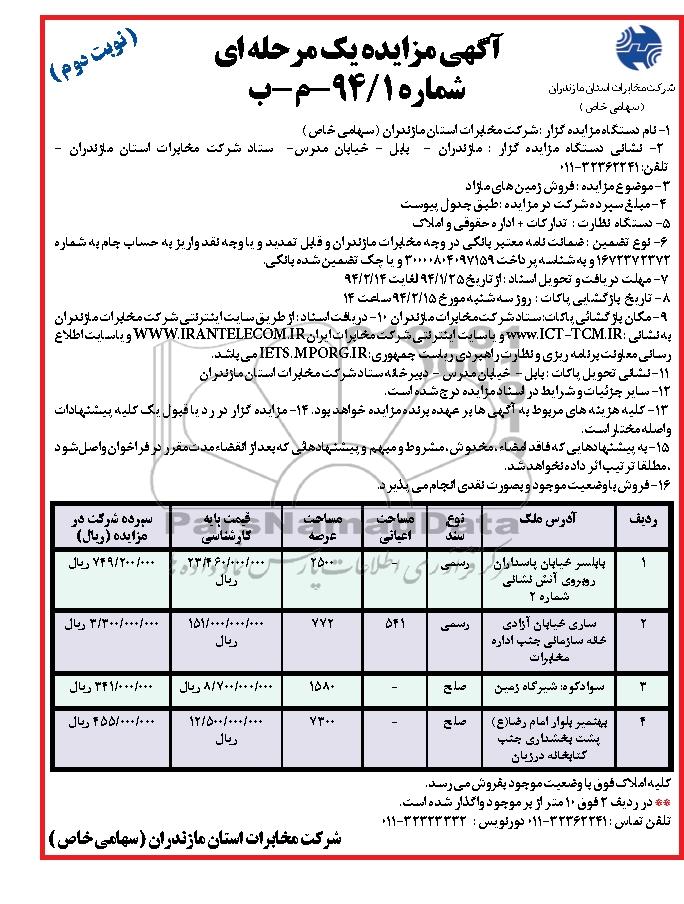 (نوبت دوم)
آگهی مزایده یک مرحله ای
شماره ۹۴/۱-م-ب
شرکت مخابرات استان مازندران
(سهامی خاص)
۱- نام دستگاه مزایده گزار : شرکت مخابرات استان مازندران (سهامی خاص)
۲- نشانی دستگاه مزایده گزار : مازندران - بابل - خیابان مدرس- ستاد شرکت مخابرات استان مازندران -
تلفن: ۳۲۳۶۲۲۴۱-۰۱۱
۳- موضوع مزایده : فروش زمین های مازاد
۴- مبلغ سپرده شرکت در مزایده : طبق جدول پیوست
۵- دستگاه نظارت : تدارکات + اداره حقوقی و املاک
۶- نوع تضمین : ضمانت نامه معتبر بانکی در وجه مخابرات مازندران و قابل تمدید و یا وجه نقد واریز به حساب جام به شماره
۱۶۷۲۳۷۲۳۷۲ و به شناسه پرداخت ۳۰۰۰۰۸۰۴۰۹۷۱۵۹ و یا چک تضمین شده بانکی.
۷- مهلت دریافت و تحویل اسناد : از تاریخ ۹۴/۱/۲۵ لغایت ۹۴/۲/۱۴
۸- تاریخ بازگشایی پاکات : روز سه شنبه مورخ ۹۴/۲/۱۵ ساعت ۱۴
۹- مکان بازگشائی پاکات: ستاد شرکت مخابرات مازندران ۱۰- دریافت اسناد : از طریق سایت اینترنتی شرکت مخابرات مازندران
به نشانی : www.ICT-TCM.IR و یا سایت اینترنتی شرکت مخابرات ایران WWW.IRANTELECOM.IR و یا سایت اطلاع
رسانی معاونت برنامه ریزی و نظارت راهبردی ریاست جمهوری: IETS.MPORG.IR می باشد.
۱۱- نشانی تحویل پاکات : بابل - خیابان مدرس - دبیرخانه ستاد شرکت مخابرات استان مازندران
۱۲- سایر جزئیات و شرایط در اسناد مزایده درج شده است.
۱۳- کلیه هزینه های مربوط به آگهی ها بر عهده برنده مزایده خواهد بود. ۱۴- مزایده گزار در رد یا قبول یک کلیه پیشنهادات
واصله مختار است.
۱۵- به پیشنهادهایی که فاقد امضاء ، مخدوش ، مشروط و مبهم و پیشنهادهائی که بعد از انقضاء مدت مقرر در فراخوان واصل شود
، مطلقا ترتیب اثر داده نخواهد شد.
۱۶- فروش با وضعیت موجود و بصورت نقدی انجام می پذیرد.
ردیف آدرس ملک نوع سند مساحت اعیانی مساحت عرصه قیمت پایه کارشناسی سپرده شرکت در مزایده (ریال)
۱ بابلسر خیابان پاسداران روبروی آتش نشانی شماره ۲ رسمی - ۲۵۰۰ ۲۳/۴۶۰/۰۰۰/۰۰۰ ریال ۷۴۹/۲۰۰/۰۰۰ ریال
۲ ساری خیابان آزادی خانه سازمانی جنب اداره مخابرات رسمی ۵۴۱ ۷۷۲ ۱۵۱/۰۰۰/۰۰۰/۰۰۰ ریال ۳/۳۰۰/۰۰۰/۰۰۰ ریال
۳ سوادکوه: شیرگاه زمین صلح - ۱۵۸۰ ۸/۷۰۰/۰۰۰/۰۰۰ ریال ۳۴۱/۰۰۰/۰۰۰ ریال
۴ بهنمیر بلوار امام رضا(ع) پشت بخشداری جنب کتابخانه درزیان صلح - ۷۳۰۰ ۱۲/۵۰۰/۰۰۰/۰۰۰ ریال ۴۵۵/۰۰۰/۰۰۰ ریال
کلیه املاک فوق با وضعیت موجود بفروش می رسد.
** در ردیف ۲ فوق ۱۰ متر از بر موجود واگذار شده است.
تلفن تماس : ۳۲۳۶۲۲۴۱-۰۱۱ دورنویس : ۳۲۳۲۳۳۳۲-۰۱۱
شرکت مخابرات استان مازندران (سهامی خاص)
ParsNamadData